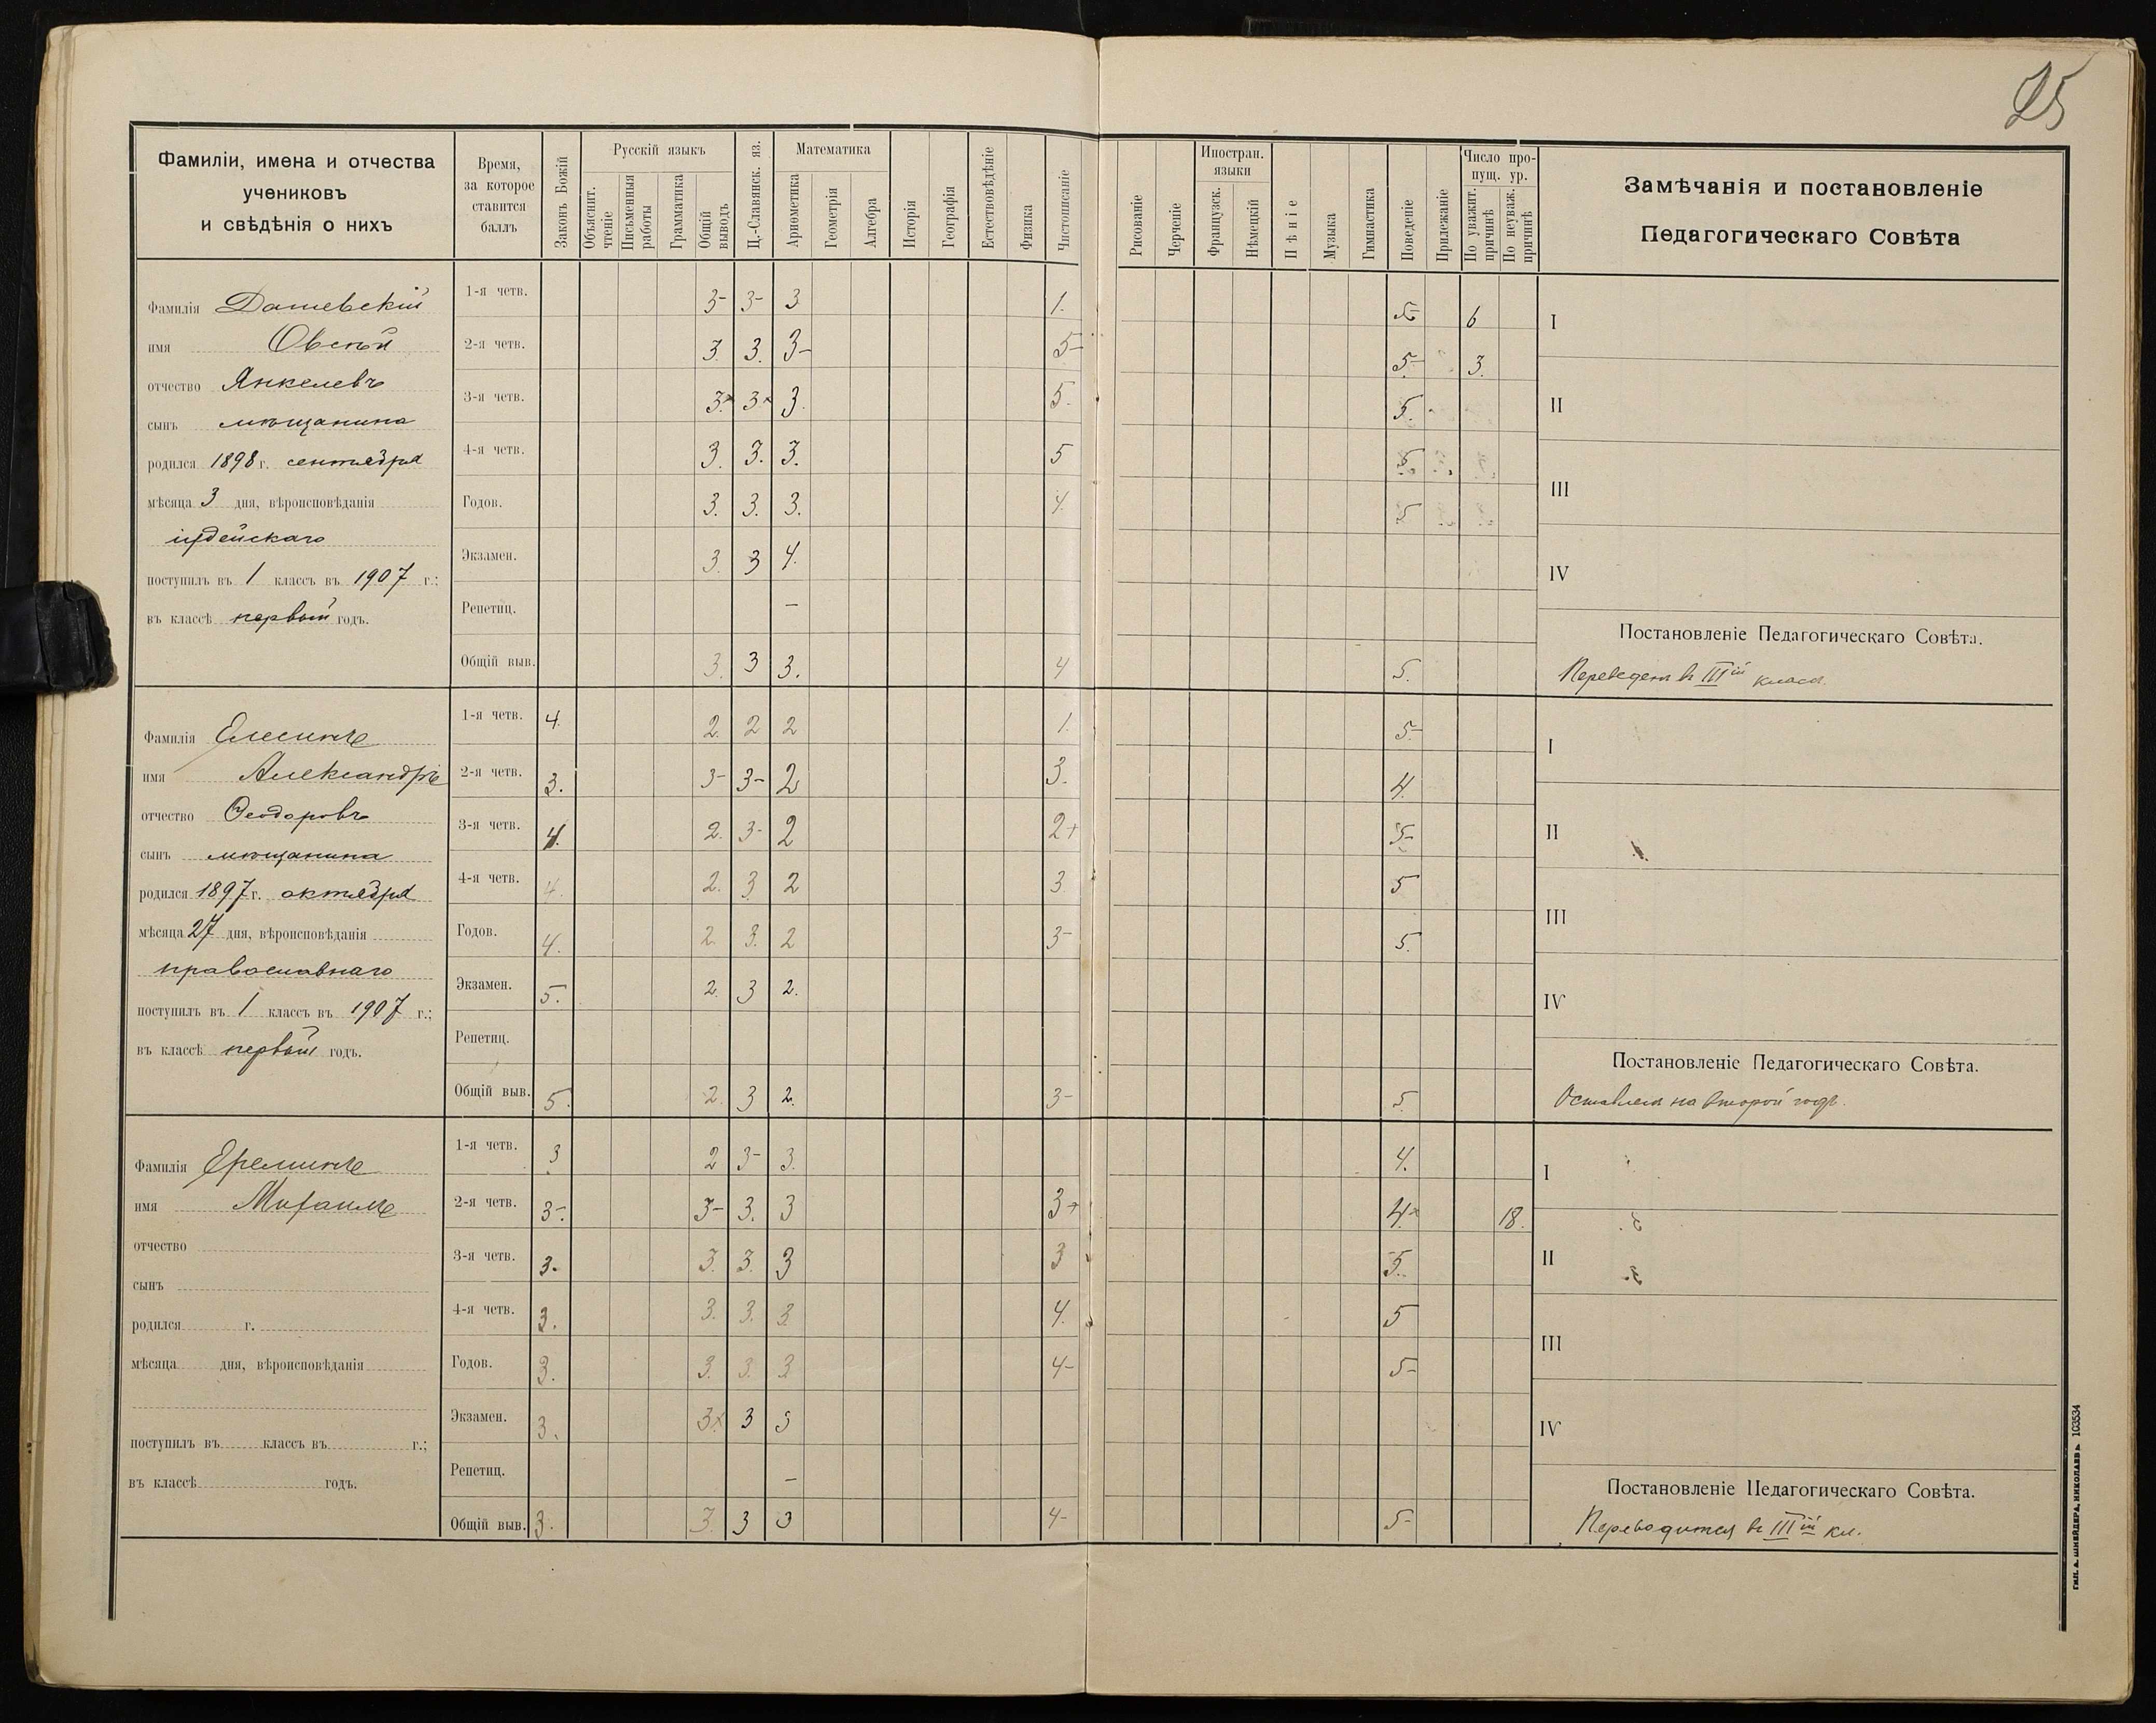 25
Фамиліи, имена и отчества
учениковъ
и свѣдѣнія о нихъ
Время,
за которое
ставится
баллъ
Законъ Божій
Русскій языкъ
Объяснит. чтеніе
Письменныя работы
Грамматика
Общій выводъ
Ц.-Славянск. яз.
Математика
Ариѳметика
Геометрія
Алгебра
Исторія
Географія
Естествовѣдѣніе
Физика
Чистописаніе
Рисованіе
Черченіе
Иностран. языки
Французск.
Нѣмецкій
Пѣніе
Музыка
Гимнастика
Поведеніе
Прилежаніе
Число пропущ. ур.
По уважит. причинѣ
По неуваж. причинѣ
Замѣчанія и постановленіе
Педагогическаго Совѣта
Фамилія Дашевскій
имя Овсѣй
отчество Янкелевъ
сынъ мѣщанина
родился 1898 г. сентября
мѣсяца 3 дня, вѣроисповѣданія
іудейскаго
поступилъ въ 1 классъ въ 1907 г.;
въ классѣ первый годъ.
1-я четв. 3- 3- 3 1. 5- 6 I
2-я четв. 3. 3. 3- 5- 5- 3.
3-я четв. 3.× 3× 3. 5. 5. II
4-я четв. 3. 3. 3. 5 5. III
Годов. 3. 3. 3. 4. 5
Экзамен. 3. 3 4. IV
Репетиц. –
Общій выв. 3. 3 3. 4 5.
Постановленіе Педагогическаго Совѣта.
Переведенъ въ IIIій классъ.
Фамилія Елисинъ
имя Александръ
отчество Ѳеодоровъ
сынъ мѣщанина
родился 1897 г. октября
мѣсяца 27 дня, вѣроисповѣданія
православнаго
поступилъ въ 1 классъ въ 1907 г.;
въ классѣ первый годъ.
1-я четв. 4. 2. 2 2 1. 5- I
2-я четв. 3. 3- 3- 2 3. 4.
3-я четв. 4. 2. 3- 2 2+ 5- II
4-я четв. 4. 2. 3 2 3. 5 III
Годов. 4. 2. 3. 2 3- 5.
Экзамен. 5. 2. 3 2. IV
Репетиц.
Общій выв. 5. 2. 3 2. 3- 5.
Постановленіе Педагогическаго Совѣта.
Оставленъ на второй годъ.
Фамилія Ереминъ
имя Михаилъ
отчество
сынъ
родился г.
мѣсяца дня, вѣроисповѣданія
поступилъ въ классъ въ г.;
въ классѣ годъ.
1-я четв. 3 2 3- 3. 4. I
2-я четв. 3-. 3- 3. 3 3+ 4.× 18.
3-я четв. 3. 3. 3. 3 3 5. II
4-я четв. 3. 3. 3. 3. 4. 5 III
Годов. 3. 3. 3. 3 4- 5-
Экзамен. 3. 3× 3 3 IV
Репетиц. –
Общій выв. 3. 3. 3 3 4- 5-
Постановленіе Педагогическаго Совѣта.
Переводится въ IIIій кл.
ТИП. А. ШНЕЙДЕРА, НИКОЛАЕВЪ. 103534